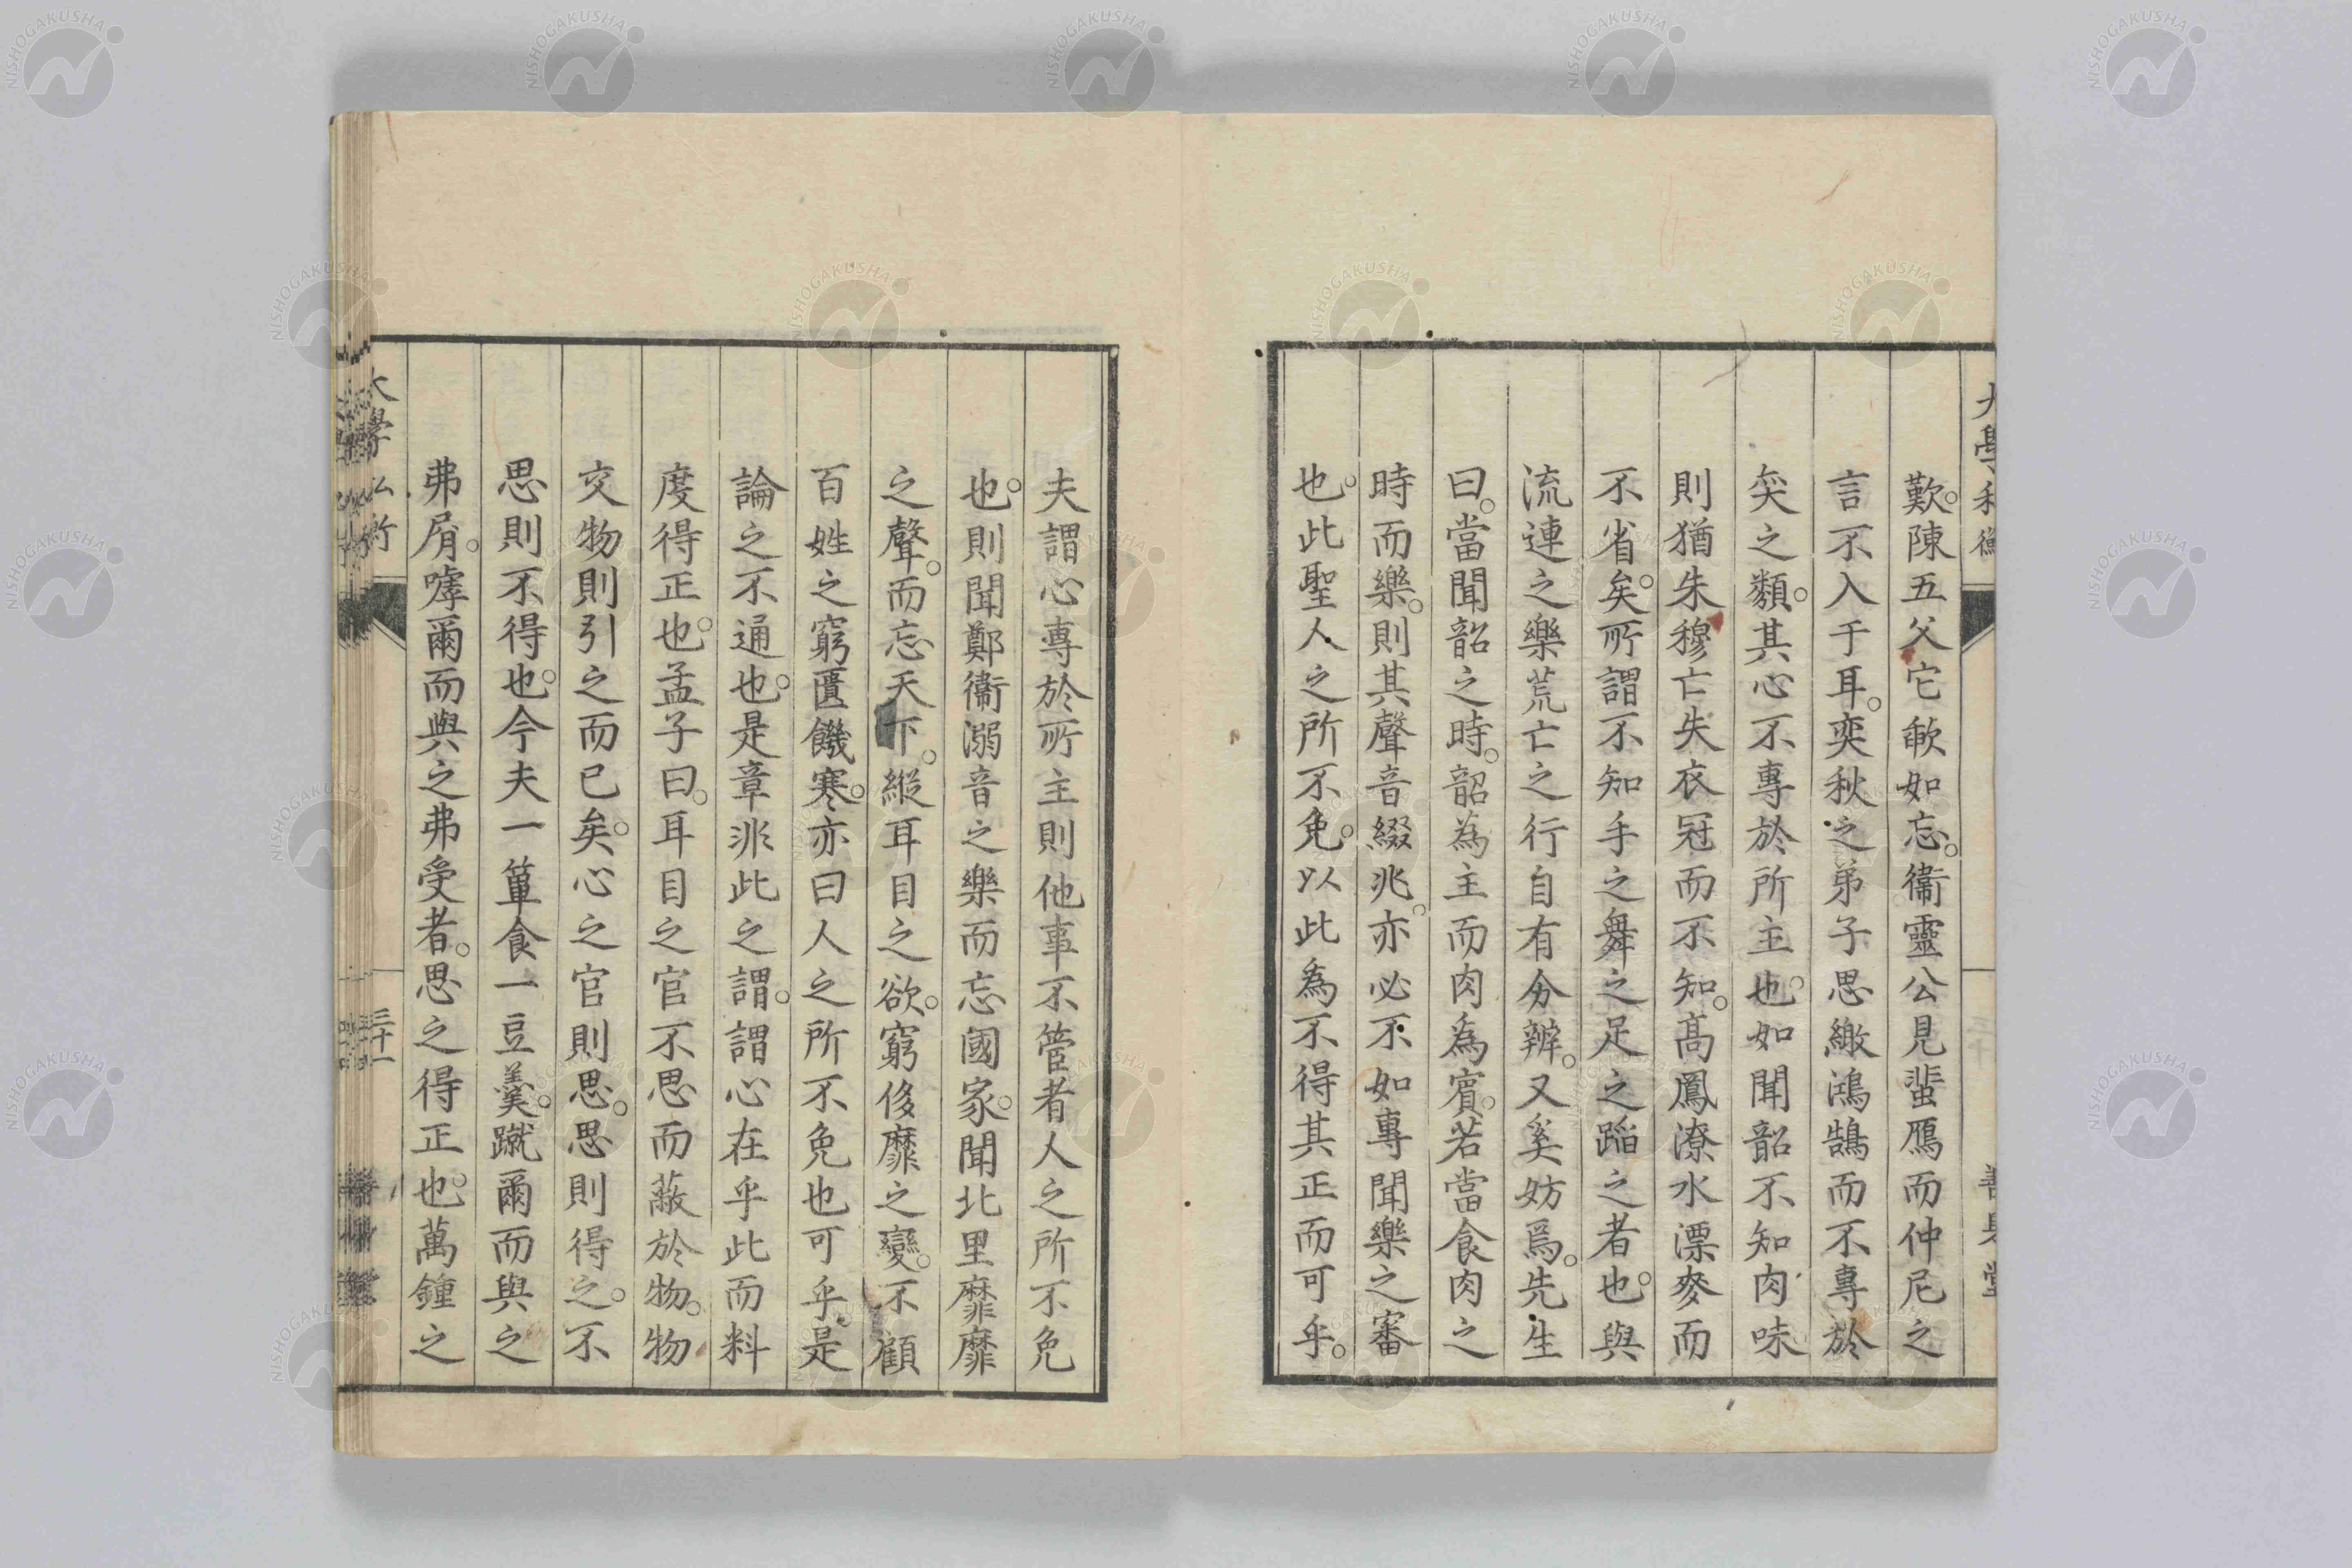 歎。陳五父它歃如忘。衞靈公見蜚鴈而仲尼之
言不入于耳。奕秋之弟子思繳鴻鵠而不專於
奕之類。其心不專於所主也。如聞韶不知肉味
則猶朱穆亡失衣冠而不知。高鳳潦水漂麥而
不省矣。所謂不知手之舞之足之蹈之者也。與
流連之樂荒亡之行自有分辨。又奚妨焉。先生
曰。當聞韶之時。韶為主而肉為賓。若當食肉之
時而樂。則其聲音綴兆。亦必不如專聞樂之審
也。此聖人之所不免。以此為不得其正而可乎。
夫謂心專於所主則他事不管者人之所不免
也。則聞鄭衞溺音之樂而忘國家。聞北里靡靡
之聲。而忘天下。縱耳目之欲。窮侈靡之變。不顧
百姓之窮匱饑寒。亦曰人之所不免也可乎。是
論之不通也。是章非此之謂。謂心在乎此而料
度得正也。孟子曰。耳目之官不思而蔽於物。物
交物則引之而已矣。心之官則思。思則得之。不
思則不得也。今夫一簞食一豆羹。蹴爾而與之
弗屑。嘑爾而與之弗受者。思之得正也。萬鍾之
三十一